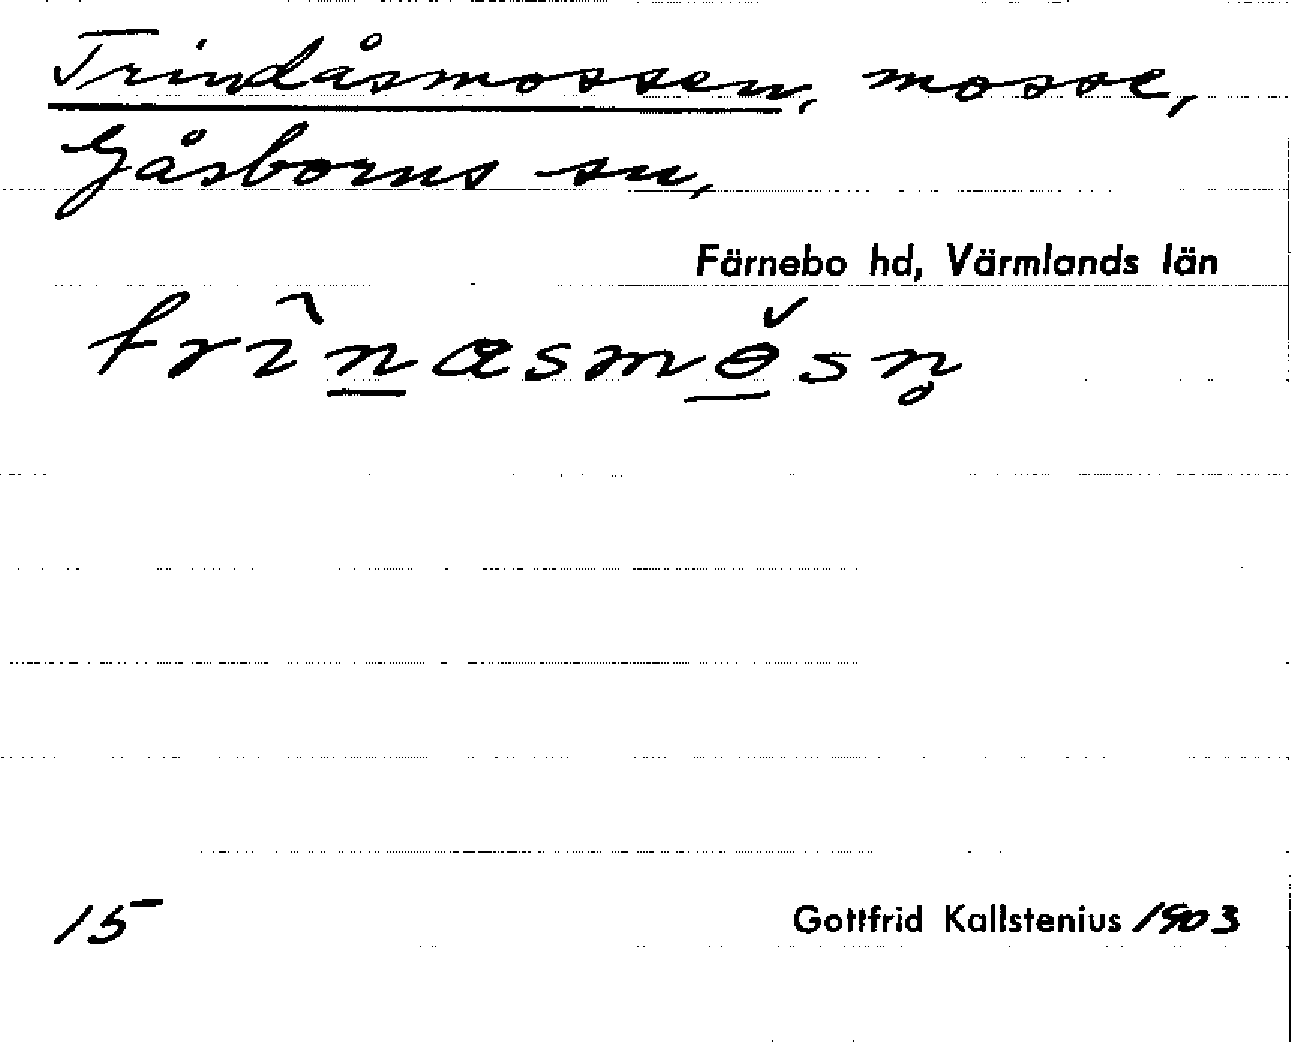 Trindåsmossen, mosse,
Gåsborns sn,
Färnebo hd, Värmlands län
trìn̲asmɵ̲̆sn̥
15
Gottfrid Kallstenius 1903